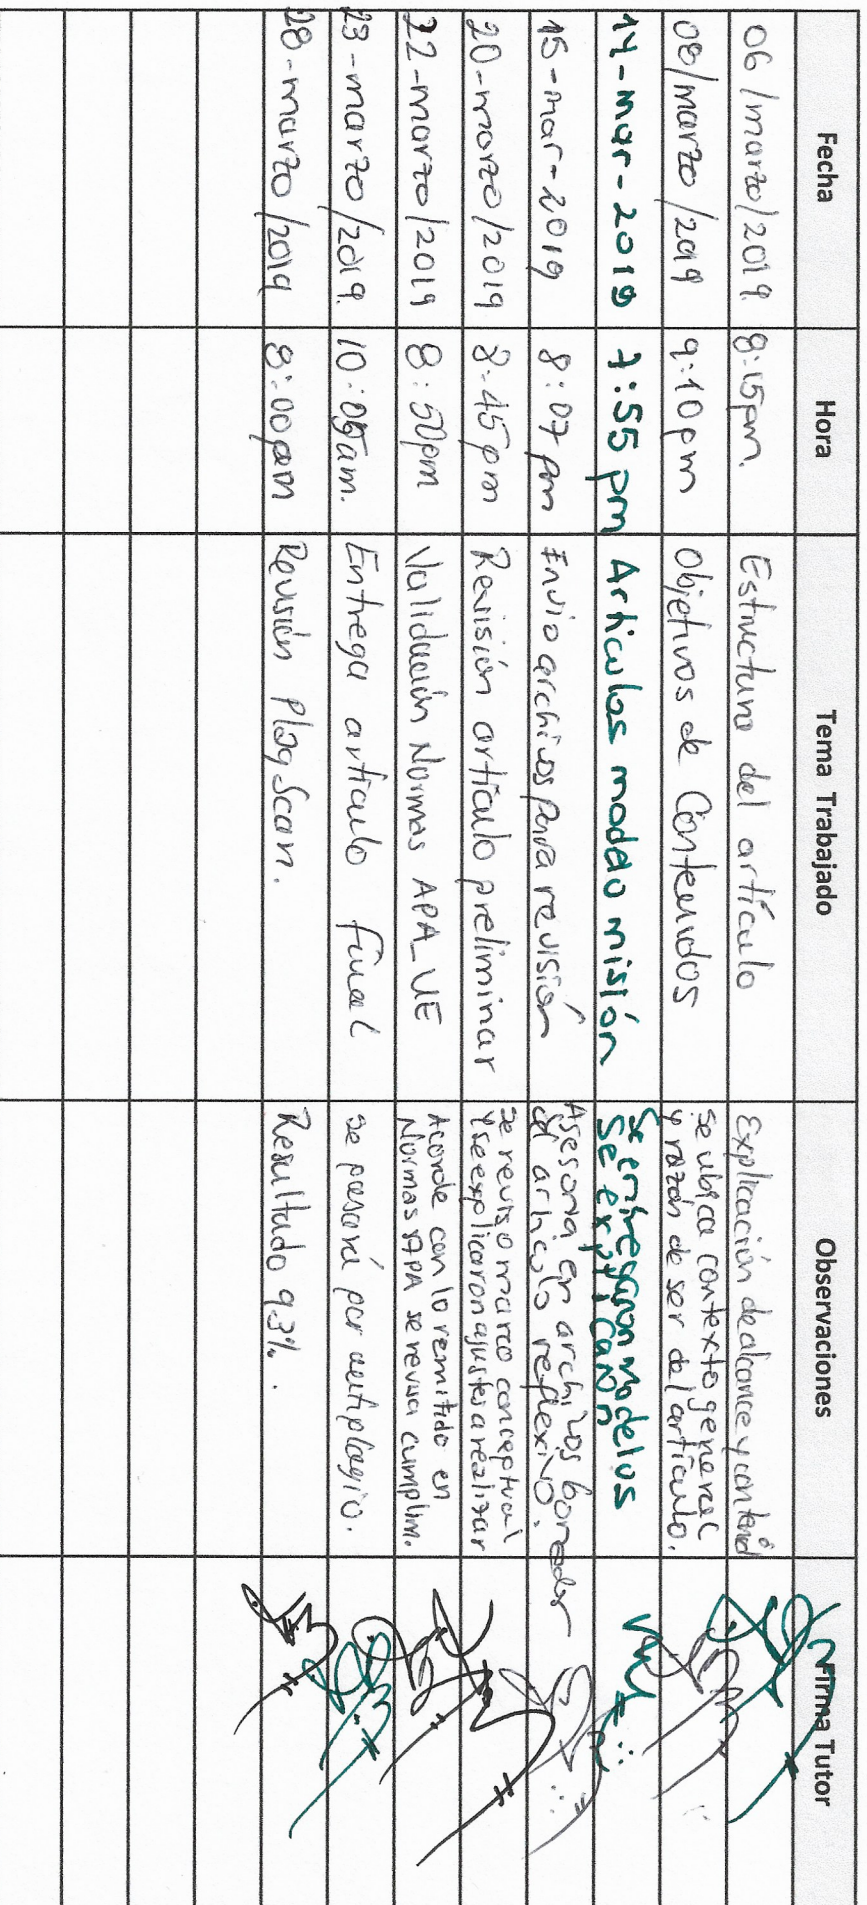 Fecha
Hora
Tema Trabajado
Observaciones
Firma Tutor
06/marzo/2019.
8:15pm.
Estructura del artículo
Explicación de alcance y contenido
08/marzo/2019
9:10pm
Objetivos de Contenidos
Se ubica contexto general
y razón de ser del artículo.
14-mar-2019
7:55 pm
Articulos modelo misión
Se entregaron modelos
Se explicaron
15-mar-2019
8:07 pm
Envio archivos para revisión
Asesoria en archivos borrador
del articulo reflexivo.
20-marzo/2019
8:45pm
Revisión artículo preliminar
Se reviso marco conceptual
y se explicaron ajustes a realizar
22-marzo/2019
8:50pm
Validación Normas APA_UE
Acorde con lo remitido en
Normas APA se revisa cumplim.
23-marzo/2019.
10:05am.
Entrega artículo final
Se pasará por antiplagio.
28-marzo/2019
8:00pm
Revisión PlagScan.
Resultado 9.3%.